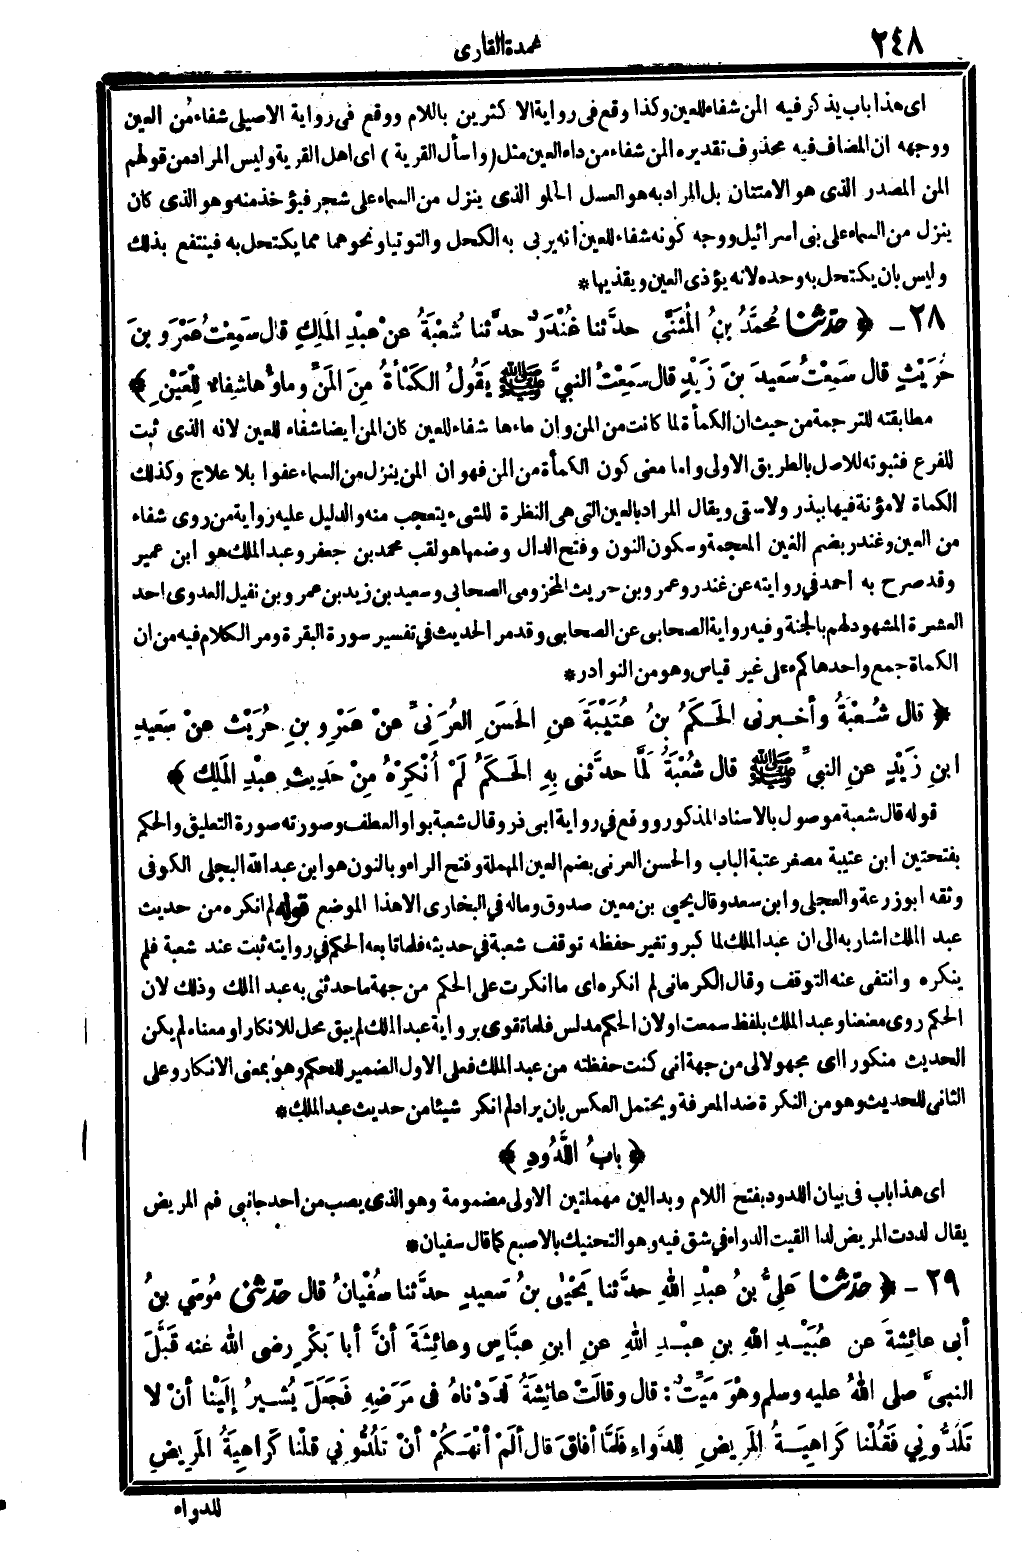 ٢٤٨
عمدة القارى
اى هذا باب يذكر فيه المن شفاء للعين وكذا وقع فى رواية الاكثرين باللام ووقع فى رواية الاصيلى شفاء من العين
ووجهه ان المضاف فيه محذوف تقديره المن شفاء من داء العين مثل (واسأل القرية) اى اهل القرية وليس المراد من قولهم
المن المصدر الذى هو الامتنان بل المراد به هو العسل الحلو الذى ينزل من السماء على شجر فيؤخذ منه وهو الذى كان
ينزل من السماء على بنى اسرائيل ووجه كونه شفاء للعين انه يربى به الكحل والتوتيا ونحوهما مما يكتحل به فينتفع بذلك
وليس بان يكتحل به وحده لانه يؤذى العين ويقذيها *
٢٨ - ﴿ حدّثنا مُحمَّدُ بنُ الْمُثَنَّى حدّثنا غُنْدَرٌ حدّثنا شُعْبَةُ عنْ عبْدِ المَلِكِ قال سَمِعْتُ عَمْرَو بنَ
حُرَيْثٍ قال سَمِعْتُ سَعِيدَ بنَ زَيْدٍ قال سَمِعْتُ النبيَّ ﷺ يَقُولُ الكَمْأَةُ مِنَ المَنِّ وماؤُها شِفاءٌ لِلْعَيْنِ ﴾
مطابقته للترجمة من حيث ان الكمأة لما كانت من المن وان ماءها شفاء للعين كان المن أيضا شفاء للعين لانه الذى ثبت
للفرع فثبوته للاصل بالطريق الاولى واما معنى كون الكمأة من المن فهو ان المن ينزل من السماء عفوا بلا علاج وكذلك
الكماة لا مؤنة فيها ببذر ولا سقى ويقال المراد بالعين التى هى النظرة للشىء يتعجب منه والدليل عليه رواية من روى شفاء
من العين وغندر بضم الغين المعجمة وسكون النون وفتح الدال وضمها هو لقب محمد بن جعفر وعبد الملك هو ابن عمير
وقد صرح به أحمد فى روايته عن غندر وعمرو بن حريث المخزومى الصحابى وسعيد بن زيد بن عمرو بن نفيل العدوى احد
العشرة المشهود لهم بالجنة وفيه رواية الصحابى عن الصحابى وقد مر الحديث فى تفسير سورة البقرة ومر الكلام فيه من ان
الكماة جمع واحدها كمء على غير قياس وهو من النوادر *
﴿ قال شُعْبَةُ وأخبرنى الحَكَمُ بنُ عُتَيْبَةَ عنِ الحَسَنِ العُرَنِىِّ عنْ عَمْرِو بنِ حُرَيْثٍ عنْ سَعِيدِ
ابنِ زَيْدٍ عنِ النبيِّ ﷺ قال شُعْبَةُ لَمَّا حدّثنى بِهِ الحَكَمُ لَمْ أُنْكِرْهُ مِنْ حَدِيثِ عبْدِ المَلِكِ ﴾
قوله قال شعبة موصول بالاسناد المذكور ووقع فى رواية ابى ذر وقال شعبة بواو العطف وصورته صورة التعليق والحكم
بفتحتين ابن عتيبة مصغر عتبة الباب والحسن العرنى بضم العين المهملة وفتح الراء وبالنون هو ابن عبد الله البجلى الكوفى
وثقه ابو زرعة والعجلى وابن سعد وقال يحيى بن معين صدوق وماله فى البخارى الا هذا الموضع قوله لم انكره من حديث
عبد الملك اشار به الى ان عبد الملك لما كبر وتغير حفظه توقف شعبة فى حديثه فلما تابعه الحكم فى روايته ثبت عند شعبة فلم
ينكره وانتفى عنه التوقف وقال الكرمانى لم انكره اى ما انكرت على الحكم من جهة ما حدثنى به عبد الملك وذلك لان
الحكم روى معنعنا وعبد الملك بلفظ سمعت او لان الحكم مدلس فلما تقوى برواية عبد الملك لم يبق محل للانكار او معناه لم يكن
الحديث منكورا اى مجهولا لى من جهة انى كنت حفظته من عبد الملك فعلى الاول الضمير للحكم وهو بمعنى الانكار وعلى
الثانى للحديث وهو من النكرة ضد المعرفة ويحتمل العكس بان يراد لم انكر شيئا من حديث عبد الملك *
﴿ بابُ اللَّدُودِ ﴾
اى هذا باب فى بيان اللدود بفتح اللام وبدالين مهملتين الاولى مضمومة وهو الذى يصب من احد جانبى فم المريض
يقال لددت المريض لدا القيت الدواء فى شق فيه وهو التحنيك بالاصبع كما قال سفيان *
٢٩ - ﴿ حدّثنا عَلِيُّ بنُ عبْدِ اللهِ حدّثنا يَحْيَى بنُ سَعِيدٍ حدّثنا سُفْيانُ قال حدّثنى مُوسَى بنُ
أبى عائِشَةَ عن عُبَيْدِ اللهِ بنِ عبْدِ اللهِ عنِ ابنِ عبَّاسٍ وعائِشَةَ أنَّ أبا بَكْرٍ رضى الله عنه قَبَّلَ
النبيَّ صلى اللهُ عليه وسلم وهْوَ مَيِّتٌ : قال وقالَتْ عائِشَةُ لَدَدْناهُ فى مَرَضِهِ فَجَعَلَ يُشِيرُ إلَيْنا أنْ لا
تَلُدُّونِي فَقُلْنا كَراهِيَةُ المَرِيضِ لِلدَّواءِ فَلَمَّا أفاقَ قال ألَمْ أنْهَكُمْ أنْ تَلُدُّونِي قلْنا كَراهِيَةُ المَرِيضِ
للدواء